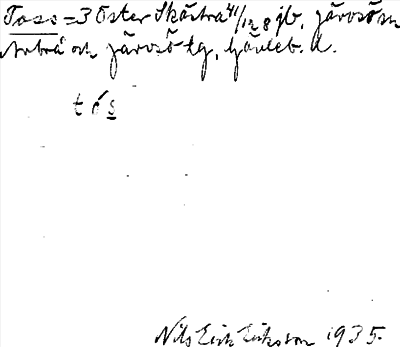 Toss = 3 Öster Skästra 41/128 jb, Järvsö sn
Arbrå och Järvsö tg, Gävleb. l.
tós
Nils Erik Eriksson 1935.